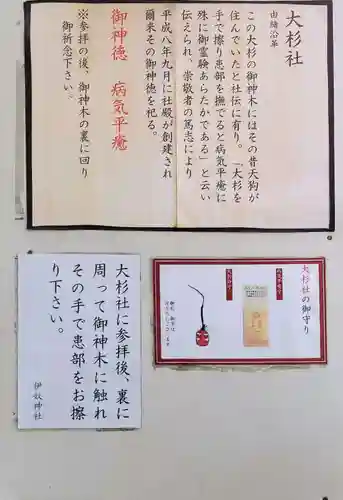 大杉社
由緒沿革
この大杉の御神木にはその昔天狗が
住んでいたと社伝に有り。「大杉を
手で擦り患部を撫でると病気平癒に
殊に御霊験あらたかである」と云い
伝えられ、崇敬者の篤志により
平成八年九月に社殿が創建され
爾来その御神徳を祀る。
御神徳 病気平癒
※参拝の後、御神木の裏に回り
御祈念下さい。
大杉社に参拝後、裏に
周って御神木に触れ
その手で患部をお擦
り下さい。
伊奴神社
大杉社の御守り